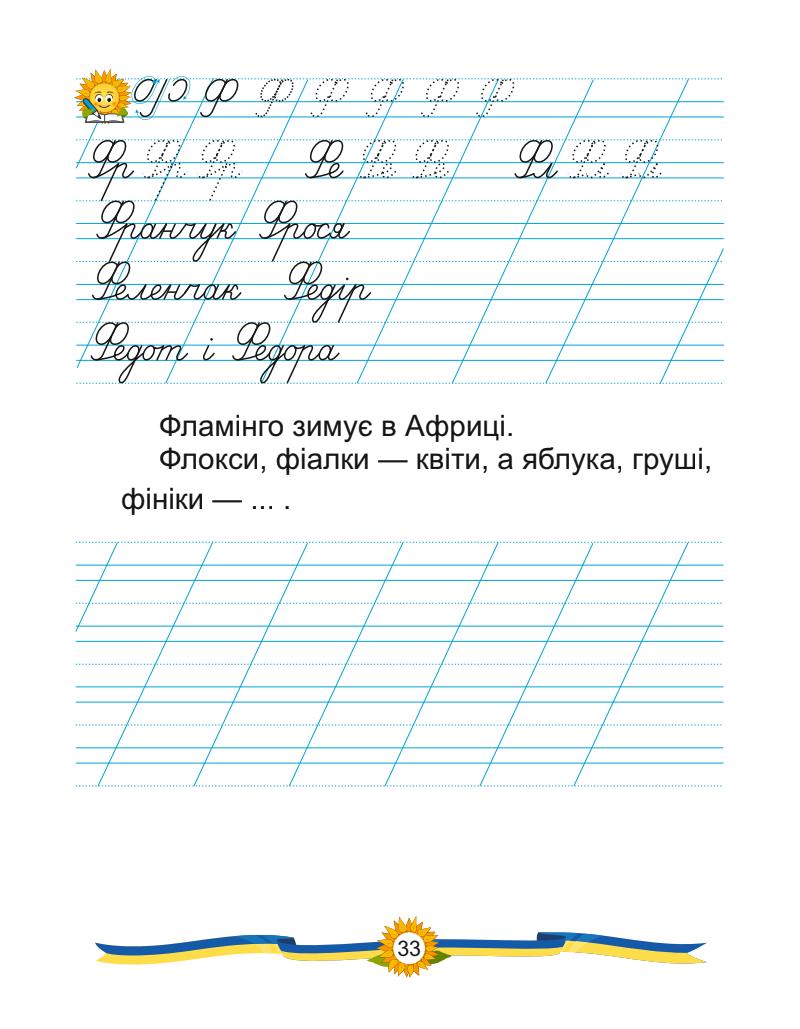 Ф Ф Ф Ф Ф Ф Ф
Фр Фр Фр Фе Фе Фе Фл Фл Фл
Франчук Фрося
Феленчак Федір
Федот і Федора
Фламінго зимує в Африці.
Флокси, фіалки — квіти, а яблука, груші,
фініки — ... .
33